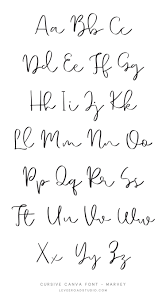 Aa Bb Cc
Dd Ee Ff Gg
Hh Ii Jj Kk
Ll Mm Nn Oo
Pp Qq Rr Ss
Tt Uu Vv Ww
Xx Yy Zz
CURSIVE CANVA FONT - MARKEY
LOVEROSESTUDIO.COM